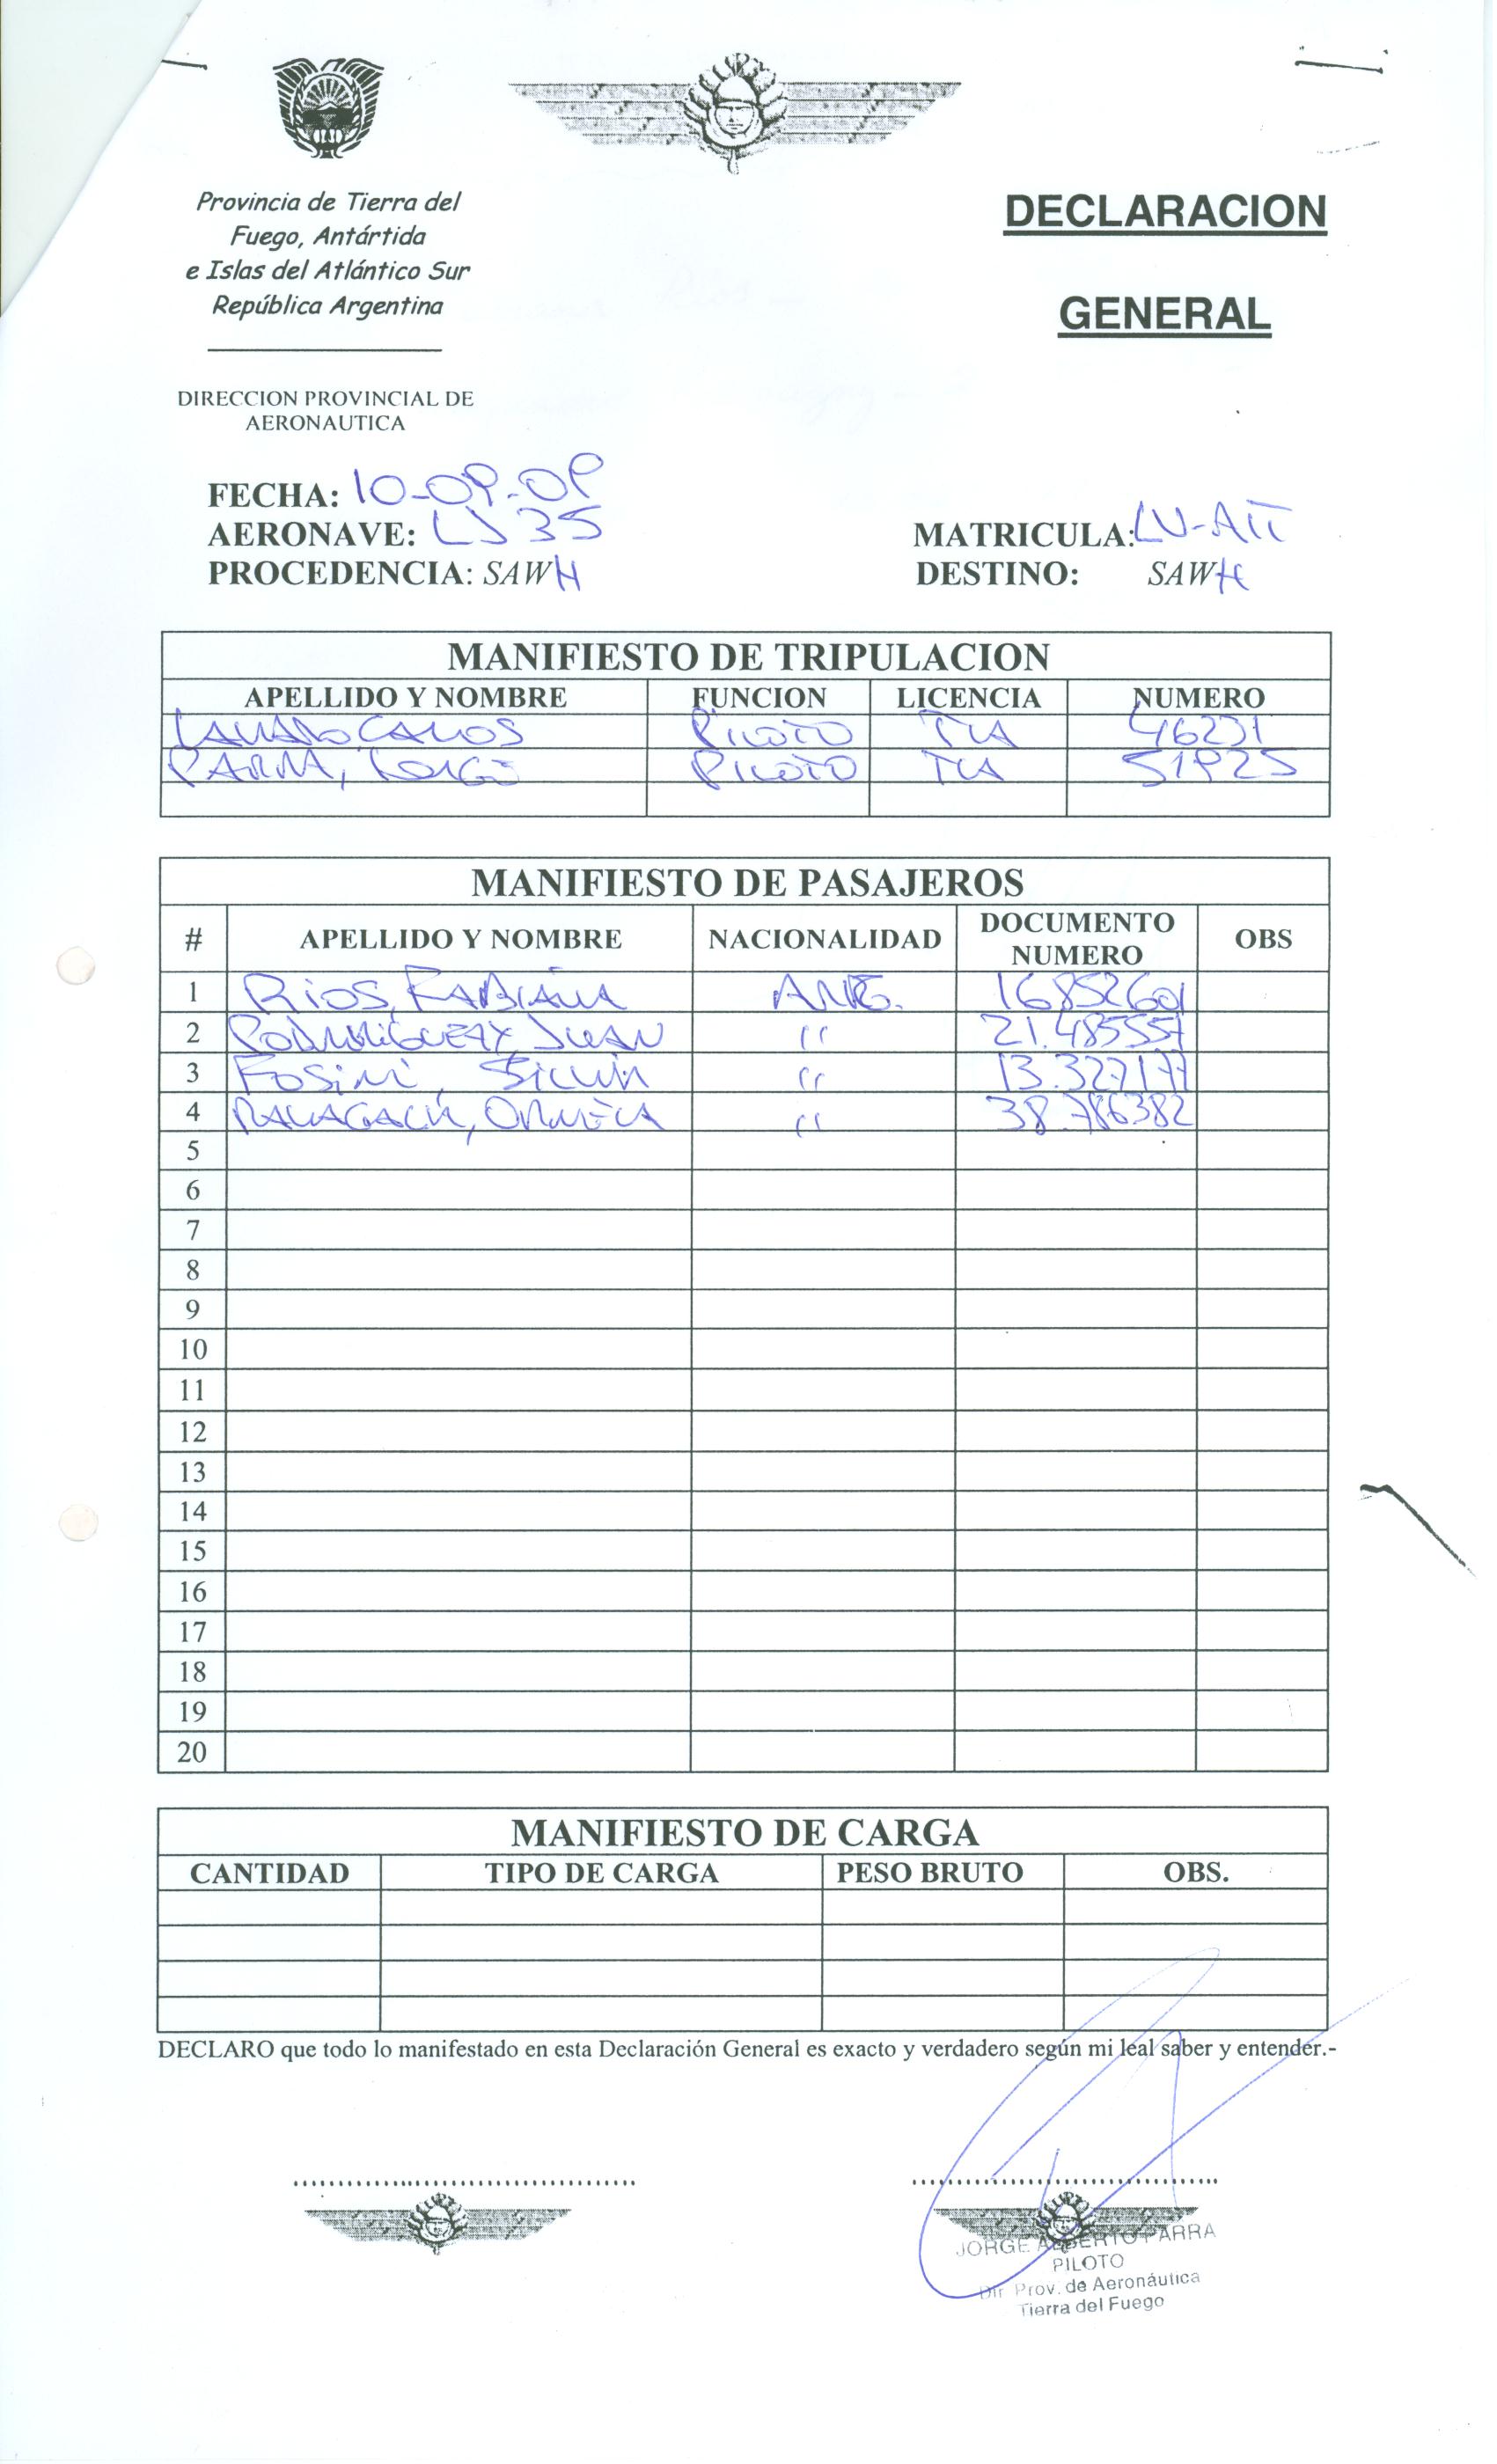 Provincia de Tierra del
Fuego, Antártida
e Islas del Atlántico Sur
República Argentina
DECLARACION
GENERAL
DIRECCION PROVINCIAL DE
AERONAUTICA
FECHA: 10-09-09
AERONAVE: LJ 35
MATRICULA: LV-AIT
PROCEDENCIA: SAWH
DESTINO: SAWH
MANIFIESTO DE TRIPULACION
APELLIDO Y NOMBRE FUNCION LICENCIA NUMERO
CARLOS PILOTO TLA 46231
PARRA, JORGE PILOTO TLA 51925
MANIFIESTO DE PASAJEROS
# APELLIDO Y NOMBRE NACIONALIDAD DOCUMENTO NUMERO OBS
1 RIOS, FABIANA ARG. 16852601
2 RODRIGUEZ, JUAN " 21.485557
3 " 13.327177
4 " 38.786382
5
6
7
8
9
10
11
12
13
14
15
16
17
18
19
20
MANIFIESTO DE CARGA
CANTIDAD TIPO DE CARGA PESO BRUTO OBS.
DECLARO que todo lo manifestado en esta Declaración General es exacto y verdadero según mi leal saber y entender.-
JORGE ALBERTO PARRA
PILOTO
Dir Prov. de Aeronáutica
Tierra del Fuego